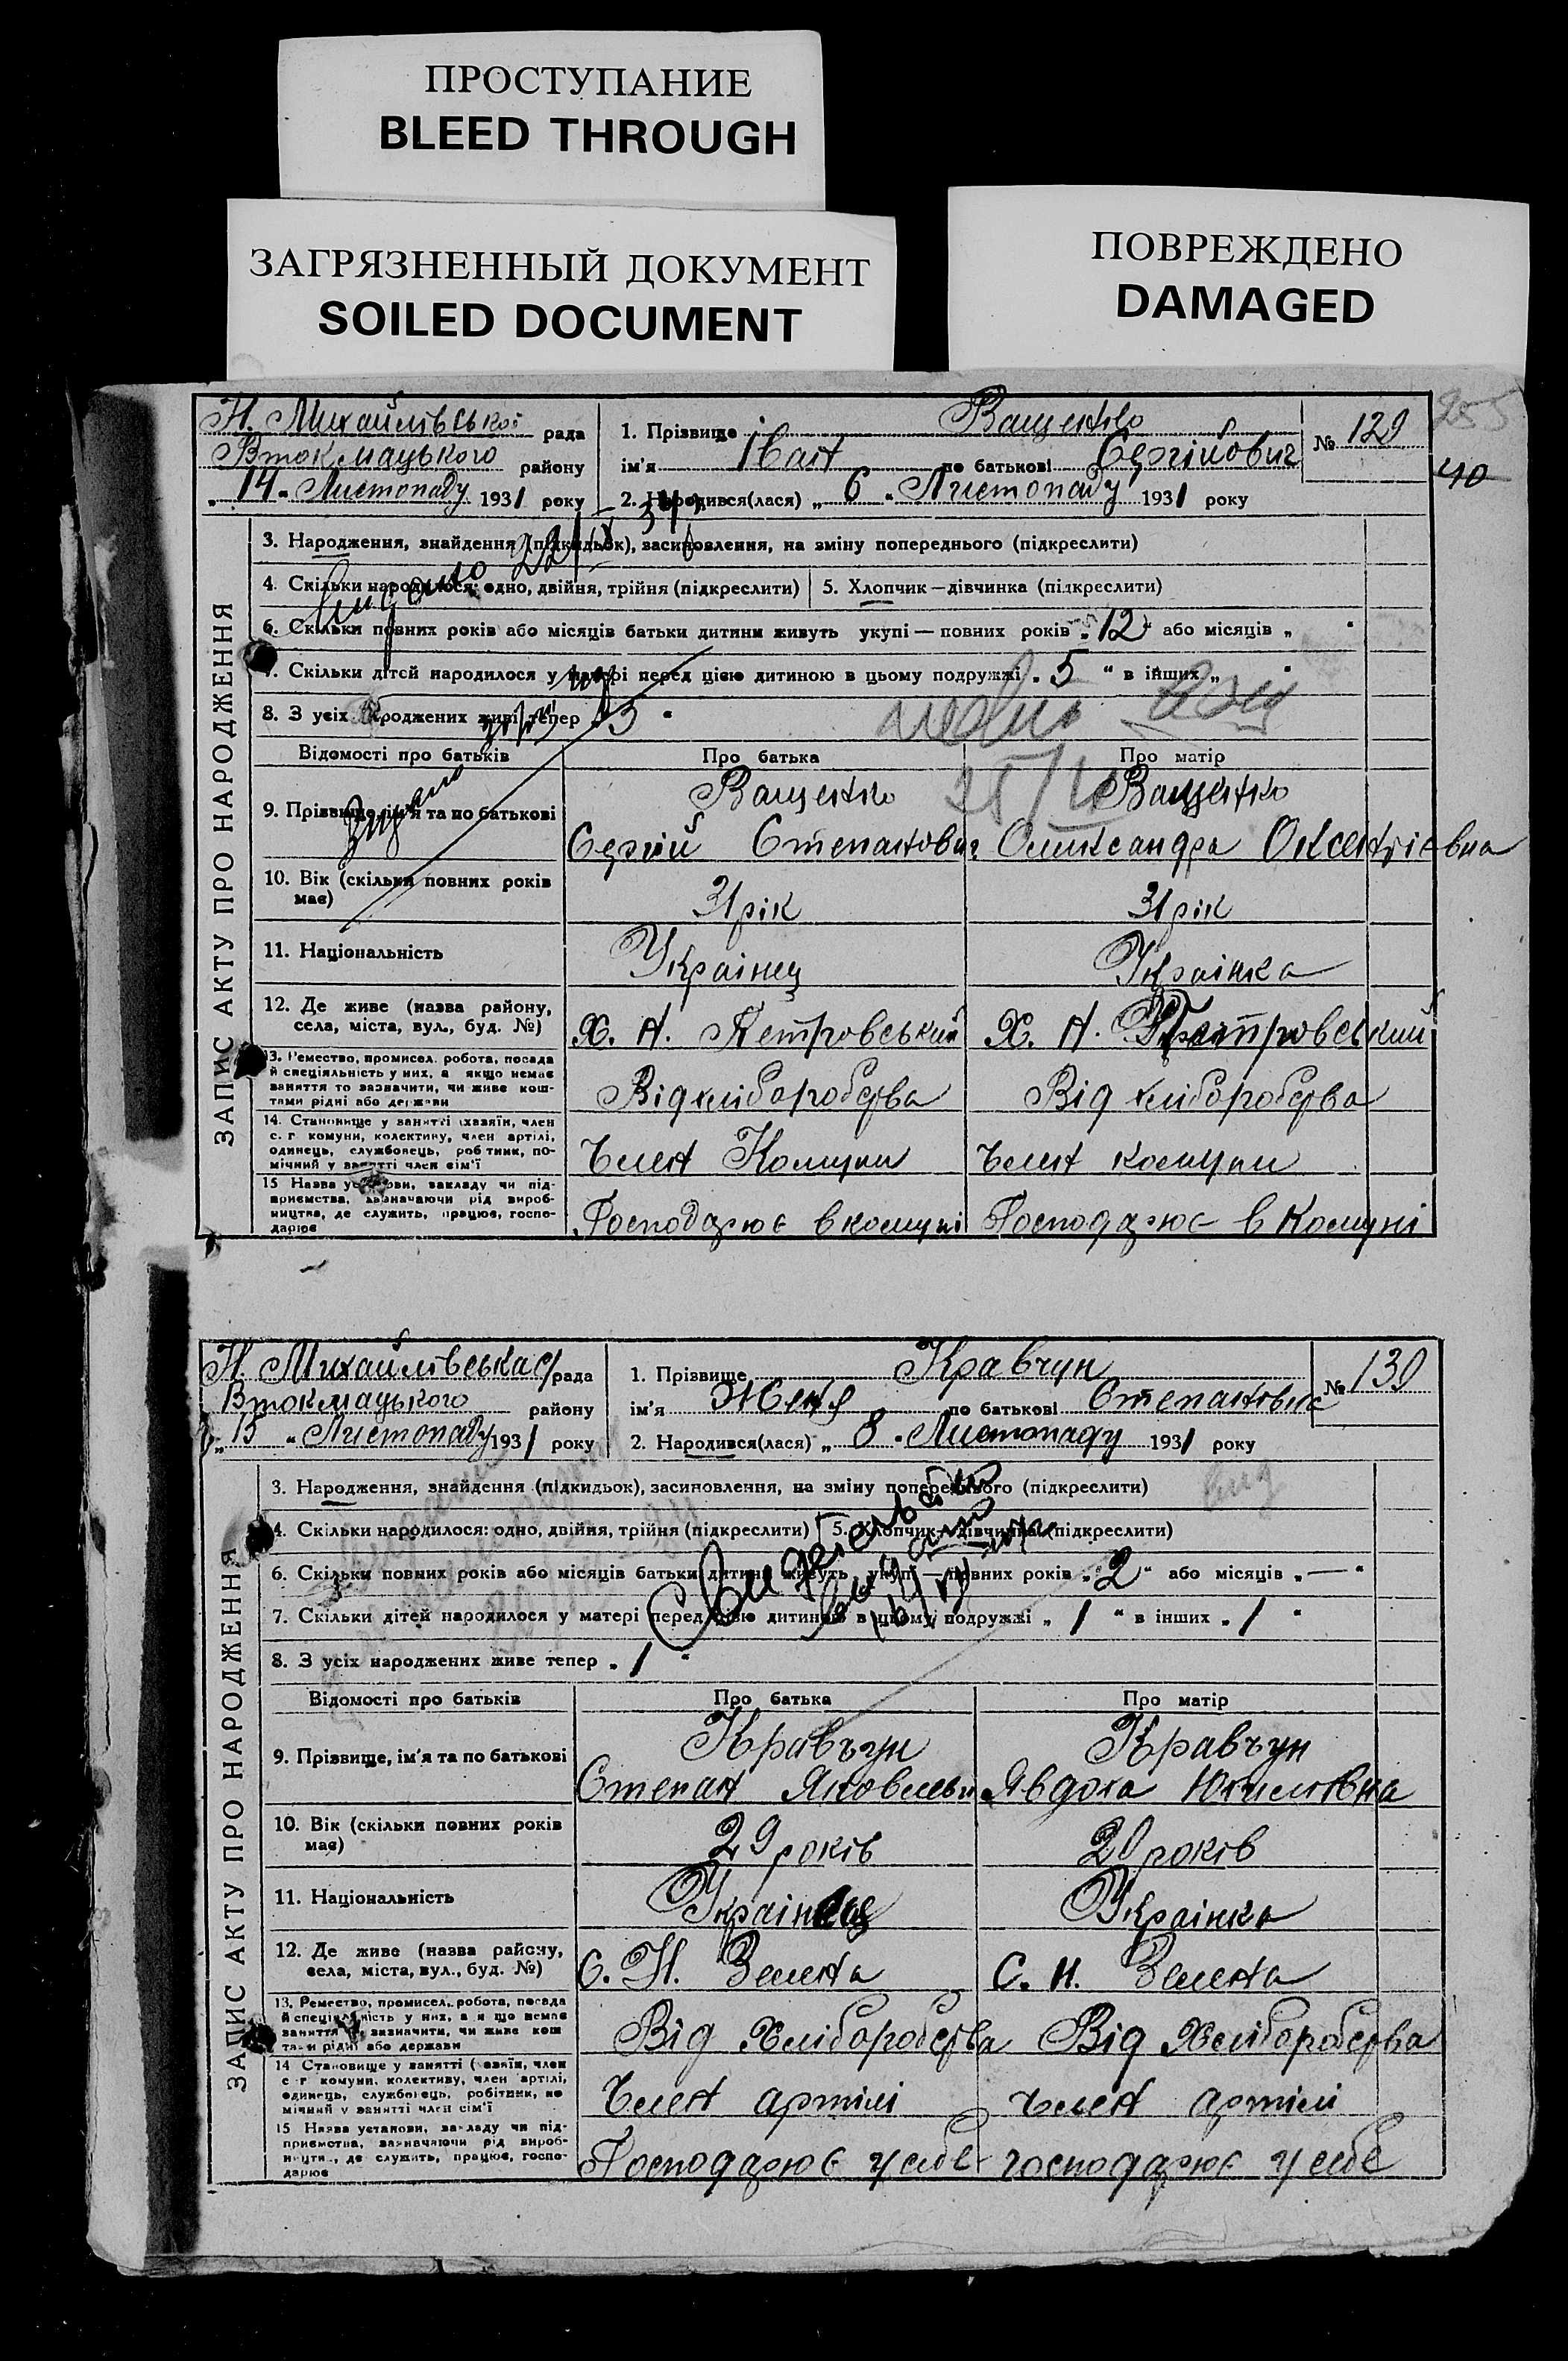 ПРОСТУПАНИЕ
BLEED THROUGH
ЗАГРЯЗНЕННЫЙ ДОКУМЕНТ
SOILED DOCUMENT
ПОВРЕЖДЕНО
DAMAGED
255
40
Н. Михайлівської рада
Втокмацького району
„14" Листопаду 1931 року
1. Прізвище Ващенко
ім'я Іван по батькові Сергійович
№ 129
2. Народився(лася) „6" Листопаду 1931 року
ЗАПИС АКТУ ПРО НАРОДЖЕННЯ
3. Народження, знайдення (підкидьок), засиновлення, на зміну попереднього (підкреслити)
4. Скільки народилося: одно, двійня, трійня (підкреслити) 5. Хлопчик—дівчинка (підкреслити)
6. Скільки повних років або місяців батьки дитини живуть укупі—повних років „12" або місяців „ "
7. Скільки дітей народилося у матері перед цією дитиною в цьому подружжі „5" в інших „ "
8. З усіх народжених живі тепер „3"
Відомості про батьків Про батька Про матір
9. Прізвище, ім'я та по батькові Ващенко Ващенко
Сергій Степанович Олександра Оксентієвна
10. Вік (скільки повних років має) 31 рік 31 рік
11. Національність Украінец Украінка
12. Де живе (назва району, села, міста, вул., буд. №) Х. Н. Петровський Х. Н. Петровський
13. Ремество, промисел, робота, посада й спеціяльність у них, а якщо немає заняття то зазначити, чи живе коштами рідні або держави Від хліборобства Від хліборобства
14. Становище у занятті (хазяїн, член с. г. комуни, колективу, член артілі, одинець, службовець, робітник, помічний у занятті член сім'ї Член Комуни Член комуни
15 Назва установи, закладу чи підприємства, зазначаючи рід виробництва, де служить, працює, господарює Господарює в комуні Господарює в Комуні
Н. Михайлівська с/рада
Втокмацького району
„15" Листопаду 1931 року
1. Прізвище Кравчун
ім'я Женя по батькові Степановна
№ 130
2. Народився(лася) „8" Листопаду 1931 року
ЗАПИС АКТУ ПРО НАРОДЖЕННЯ
3. Народження, знайдення (підкидьок), засиновлення, на зміну попереднього (підкреслити)
4. Скільки народилося: одно, двійня, трійня (підкреслити) 5. Хлопчик—дівчинка (підкреслити)
6. Скільки повних років або місяців батьки дитини живуть укупі—повних років „2" або місяців „—"
7. Скільки дітей народилося у матері перед цією дитиною в цьому подружжі „1" в інших „1"
8. З усіх народжених живе тепер „1"
Відомості про батьків Про батька Про матір
9. Прізвище, ім'я та по батькові Кравчун Кравчун
Степан Явдоха Юхимовна
10. Вік (скільки повних років має) 29 років 20 років
11. Національність Украінец Украінка
12. Де живе (назва району, села, міста, вул., буд. №) С. Н. Зелена С. Н. Зелена
13. Ремество, промисел, робота, посада й спеціяльність у них, а якщо немає заняття то зазначити, чи живе коштами рідні або держави Від Хліборобства Від Хліборобства
14 Становище у занятті (хазяїн, член с г комуни, колективу, член артілі, одинець, службовець, робітник, помічний у занятті член сім'ї Член артілі Член артілі
15 Назва установи, закладу чи підприємства, зазначаючи рід виробництва, де служить, працює, господарює Господарює у себе господарює у себе